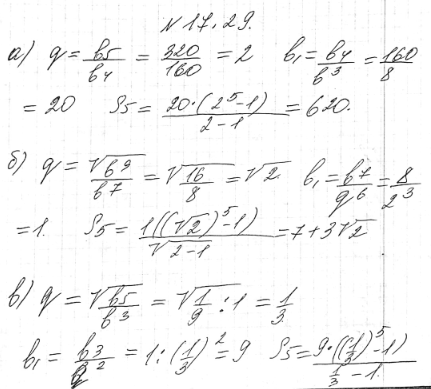 №17.29.
а) q = b5/b4 = 320/160 = 2 b1 = b4/b^3 = 160/8
= 20 S5 = 20·(2^5-1)/2-1 = 620.
б) q = √b9/b7 = √16/8 = √2 b1 = b7/q^6 = 8/2^3
= 1. S5 = 1((√2)^5-1)/√2-1 = 7+3√2
в) q = √b5/b3 = √1/9 : 1 = 1/3
b1 = b3/q^2 = 1:(1/3)^2 = 9 S5 = 9·((1/3)^5-1)/1/3-1.